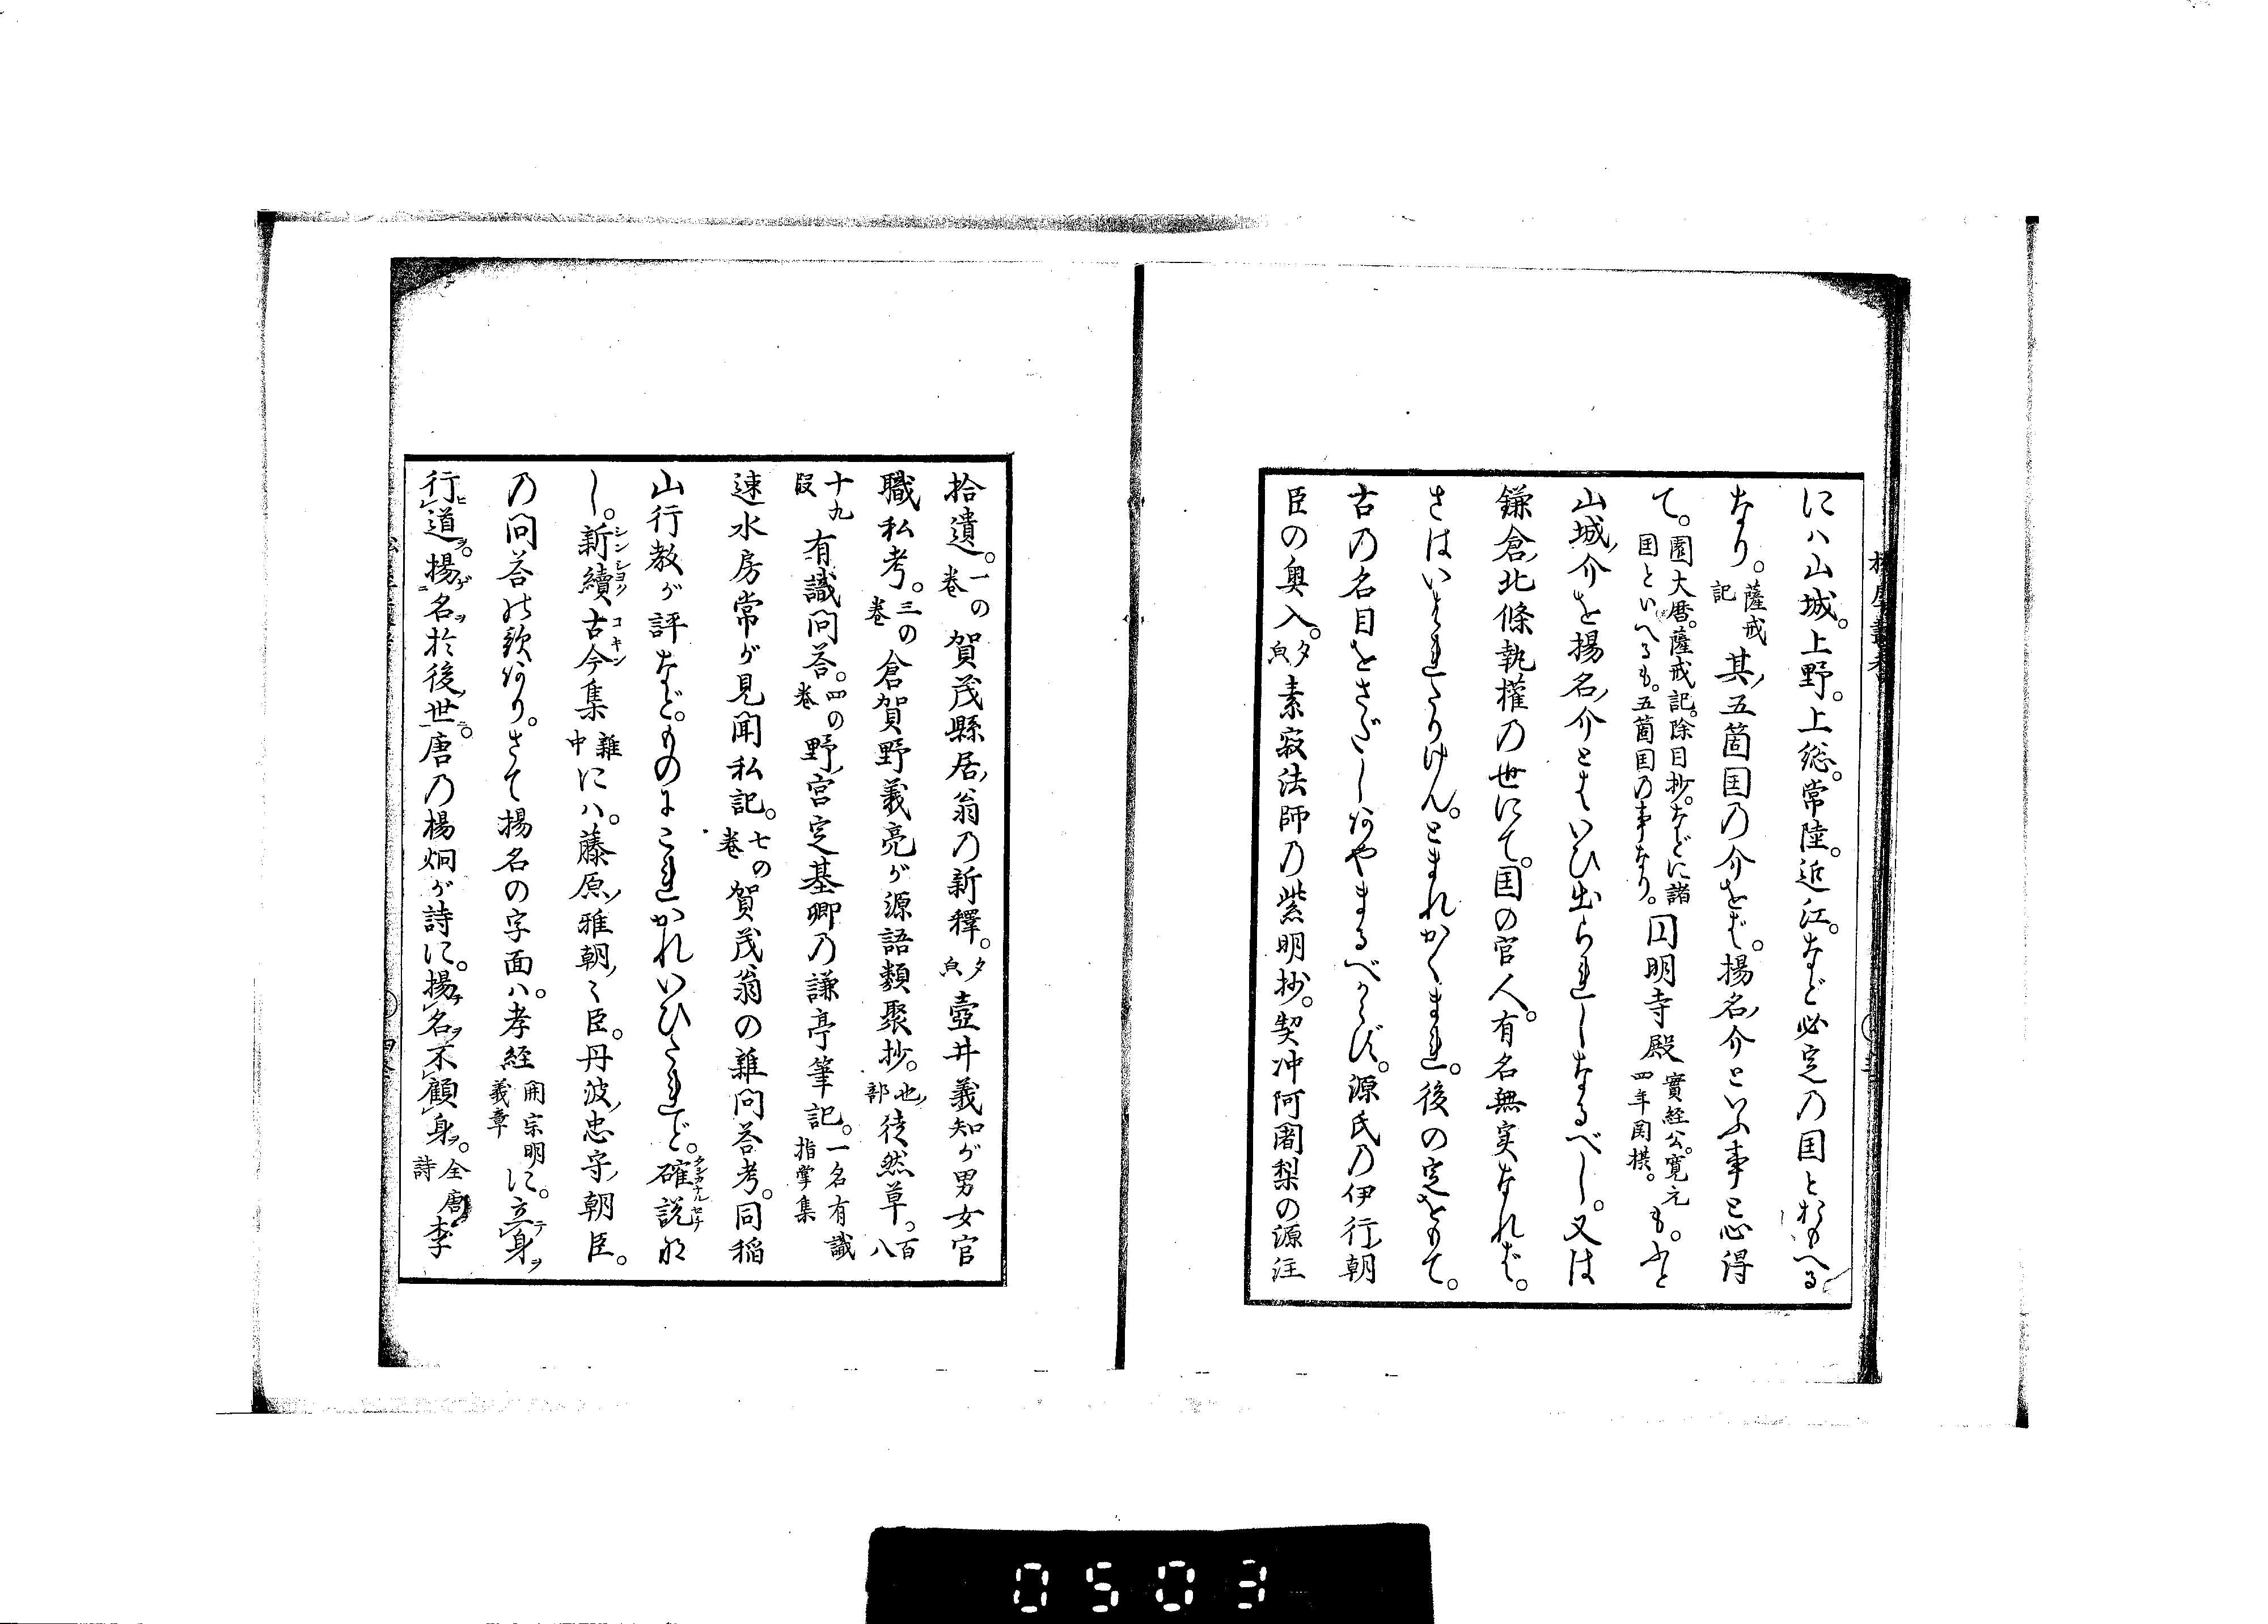 にハ山城。上野。上総。常陸。近江。など必定の国とおもへる
なり。薩戒記其ノ五箇国の介をば。揚名ノ介といふ事と心得
て。園大暦。薩戒記。除目抄。などに諸国といへるも。五箇国の事なり。円明寺殿實経公。寛元四年関撲。も。ふと
山城ノ介を揚名ノ介とはいひ出られしなるべし。又は
鎌倉ノ北條執權の世にて。国の官人。有名無実なれば。
さはいはれたりけん。とまれかくまれ。後の定をもて。
古の名目をさだしあやまるべからず。源氏の伊行ノ朝
臣の奥入。夕㒵素寂法師の紫明抄。契冲阿闍梨の源注
拾遺。一の巻賀茂縣居ノ翁の新釋。夕㒵壺井義知が男女官
職私考。三の巻倉賀野義亮が源語類聚抄。也ノ部徒然草。百八
十九段有識問答。四の巻野ノ宮定基卿の謙亭筆記。一名有識指掌集
速水房常が見聞私記。七の巻賀茂翁の雑問答考。同稲
山行教が評など。ものにこれかれいひたれど。確説な
し。新續古今集雑中にハ。藤原ノ雅朝ノ々臣。丹波ノ忠守ノ朝臣。
の問答の歌あり。さて揚名の字面ハ。孝経開宗明義章に。立テ身ヲ
行ヒ道ヲ。揚ゲ名ヲ於後ノ世ニ。唐の楊炯が詩に。揚テ名ヲ不顧身ヲ。全唐詩李
0503